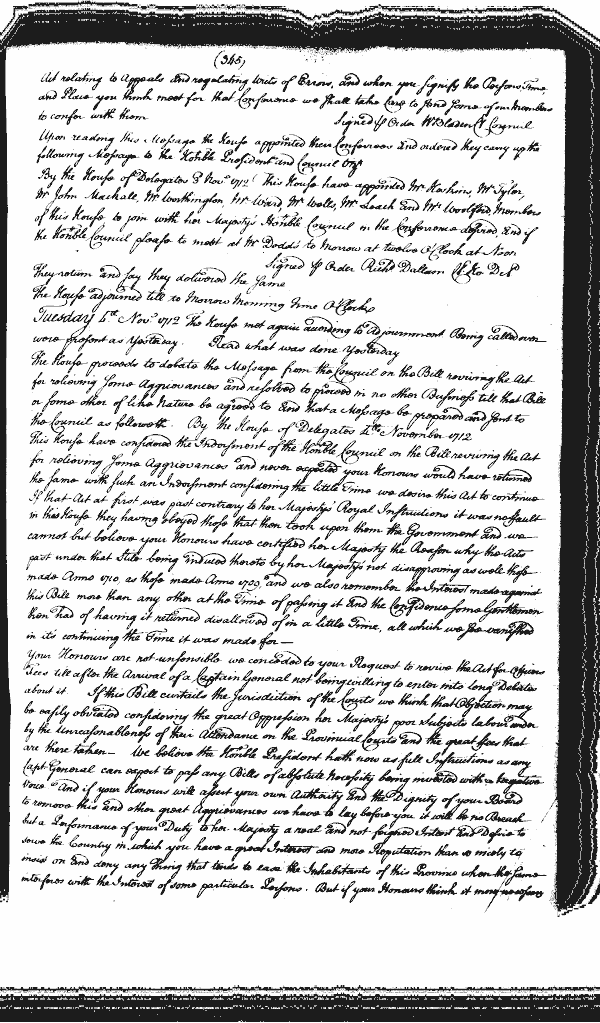 (345)
Act relating to Appeals and regulating writs of Errors, and when you signify the Persons Time
and Place you think meet for that Conference we shall take Care to send some of our Members
to confer with them Signed p Order Wm Bladen Cl Council
Upon reading this Message the House appointed their Conferrees and ordered they carry up the
following Message to the Honble President and Council Vizt
By the House of Delegates 3 Novr 1712 This House have appointed Mr Hoskins, Mr Tyler,
Mr John Mackall, Mr Worthington, Mr Ward Mr Wells, Mr Leach and Mr Woolford Members
of this House to join with her Majestys Honble Council in the Conference desired, and if
the Honble Council please to meet at Mr Dodds to Morrow at twelve O'Clock at Noon
Signed p Order Richd Dallam Cl Ho. Del
They return and say they delivered the same
The House adjourned till to Morrow Morning Nine O'Clock
Tuesday 4th Novr 1712 The House met again according to Adjournment Being called over
were present as Yesterday. Read what was done Yesterday
The House proceeds to debate the Message from the Council on the Bill reviving the Act
for relieving some Aggrievances and resolved to proceed in no other Business till that Bill
or some other of like Nature be agreed to and that a Message be prepared and sent to
the Council as followeth. By the House of Delegates 4th November 1712
This House have considered the Indorsment of the Honble Council on the Bill reviving the Act
for relieving some Aggrievances and never expected your Honours would have returned
the same with such an Indorsment considering the little Time we desire this Act to continue
If that Act at first was past contrary to her Majestys Royal Instructions it was no fault
in this House they having obeyed those that then took upon them the Government and we
cannot but believe your Honours have certified her Majesty the Reason why the Acts
past under that Stile being induced thereto by her Majestys not disapproving as well those
made Anno 1710, as those made Anno 1709, and we also remember the Interest made against
this Bill more than any other at the Time of passing it and the Confidence some Gentlemen
then had of having it returned disallowed of in a little Time, all which we see vanished
in its continuing the Time it was made for —
Your Honours are not unsensible we conceded to your Request to revive the Act for Officers
Fees till after the Arrival of a Captain General not being willing to enter into long Debates
about it. If this Bill curtails the Jurisdiction of the Courts we think that Objection may
be easily obviated considering the great Oppression her Majestys poor Subjects labour under
by the Unreasonableness of their Attendance on the Provincial Courts and the great fees that
are there taken — We believe the Honble President hath now as full Instructions as any
Capt General can expect to pass any Bills of absolute Necessity being invested with a Negative
Voice And if your Honours will assert your own Authority and the Dignity of your Board
to remove this and other great Aggrievances we have to lay before you it will be no Breach
but a Performance of your Duty to her Majesty a real and not feigned Intent and Desire to
serve the Country in which you have a great Interest and more Reputation than so nicely to
insist on and deny any thing that tends to ease the Inhabitants of this Province when the same
interferes with the Interest of some particular Persons. But if your Honours think it more necessary